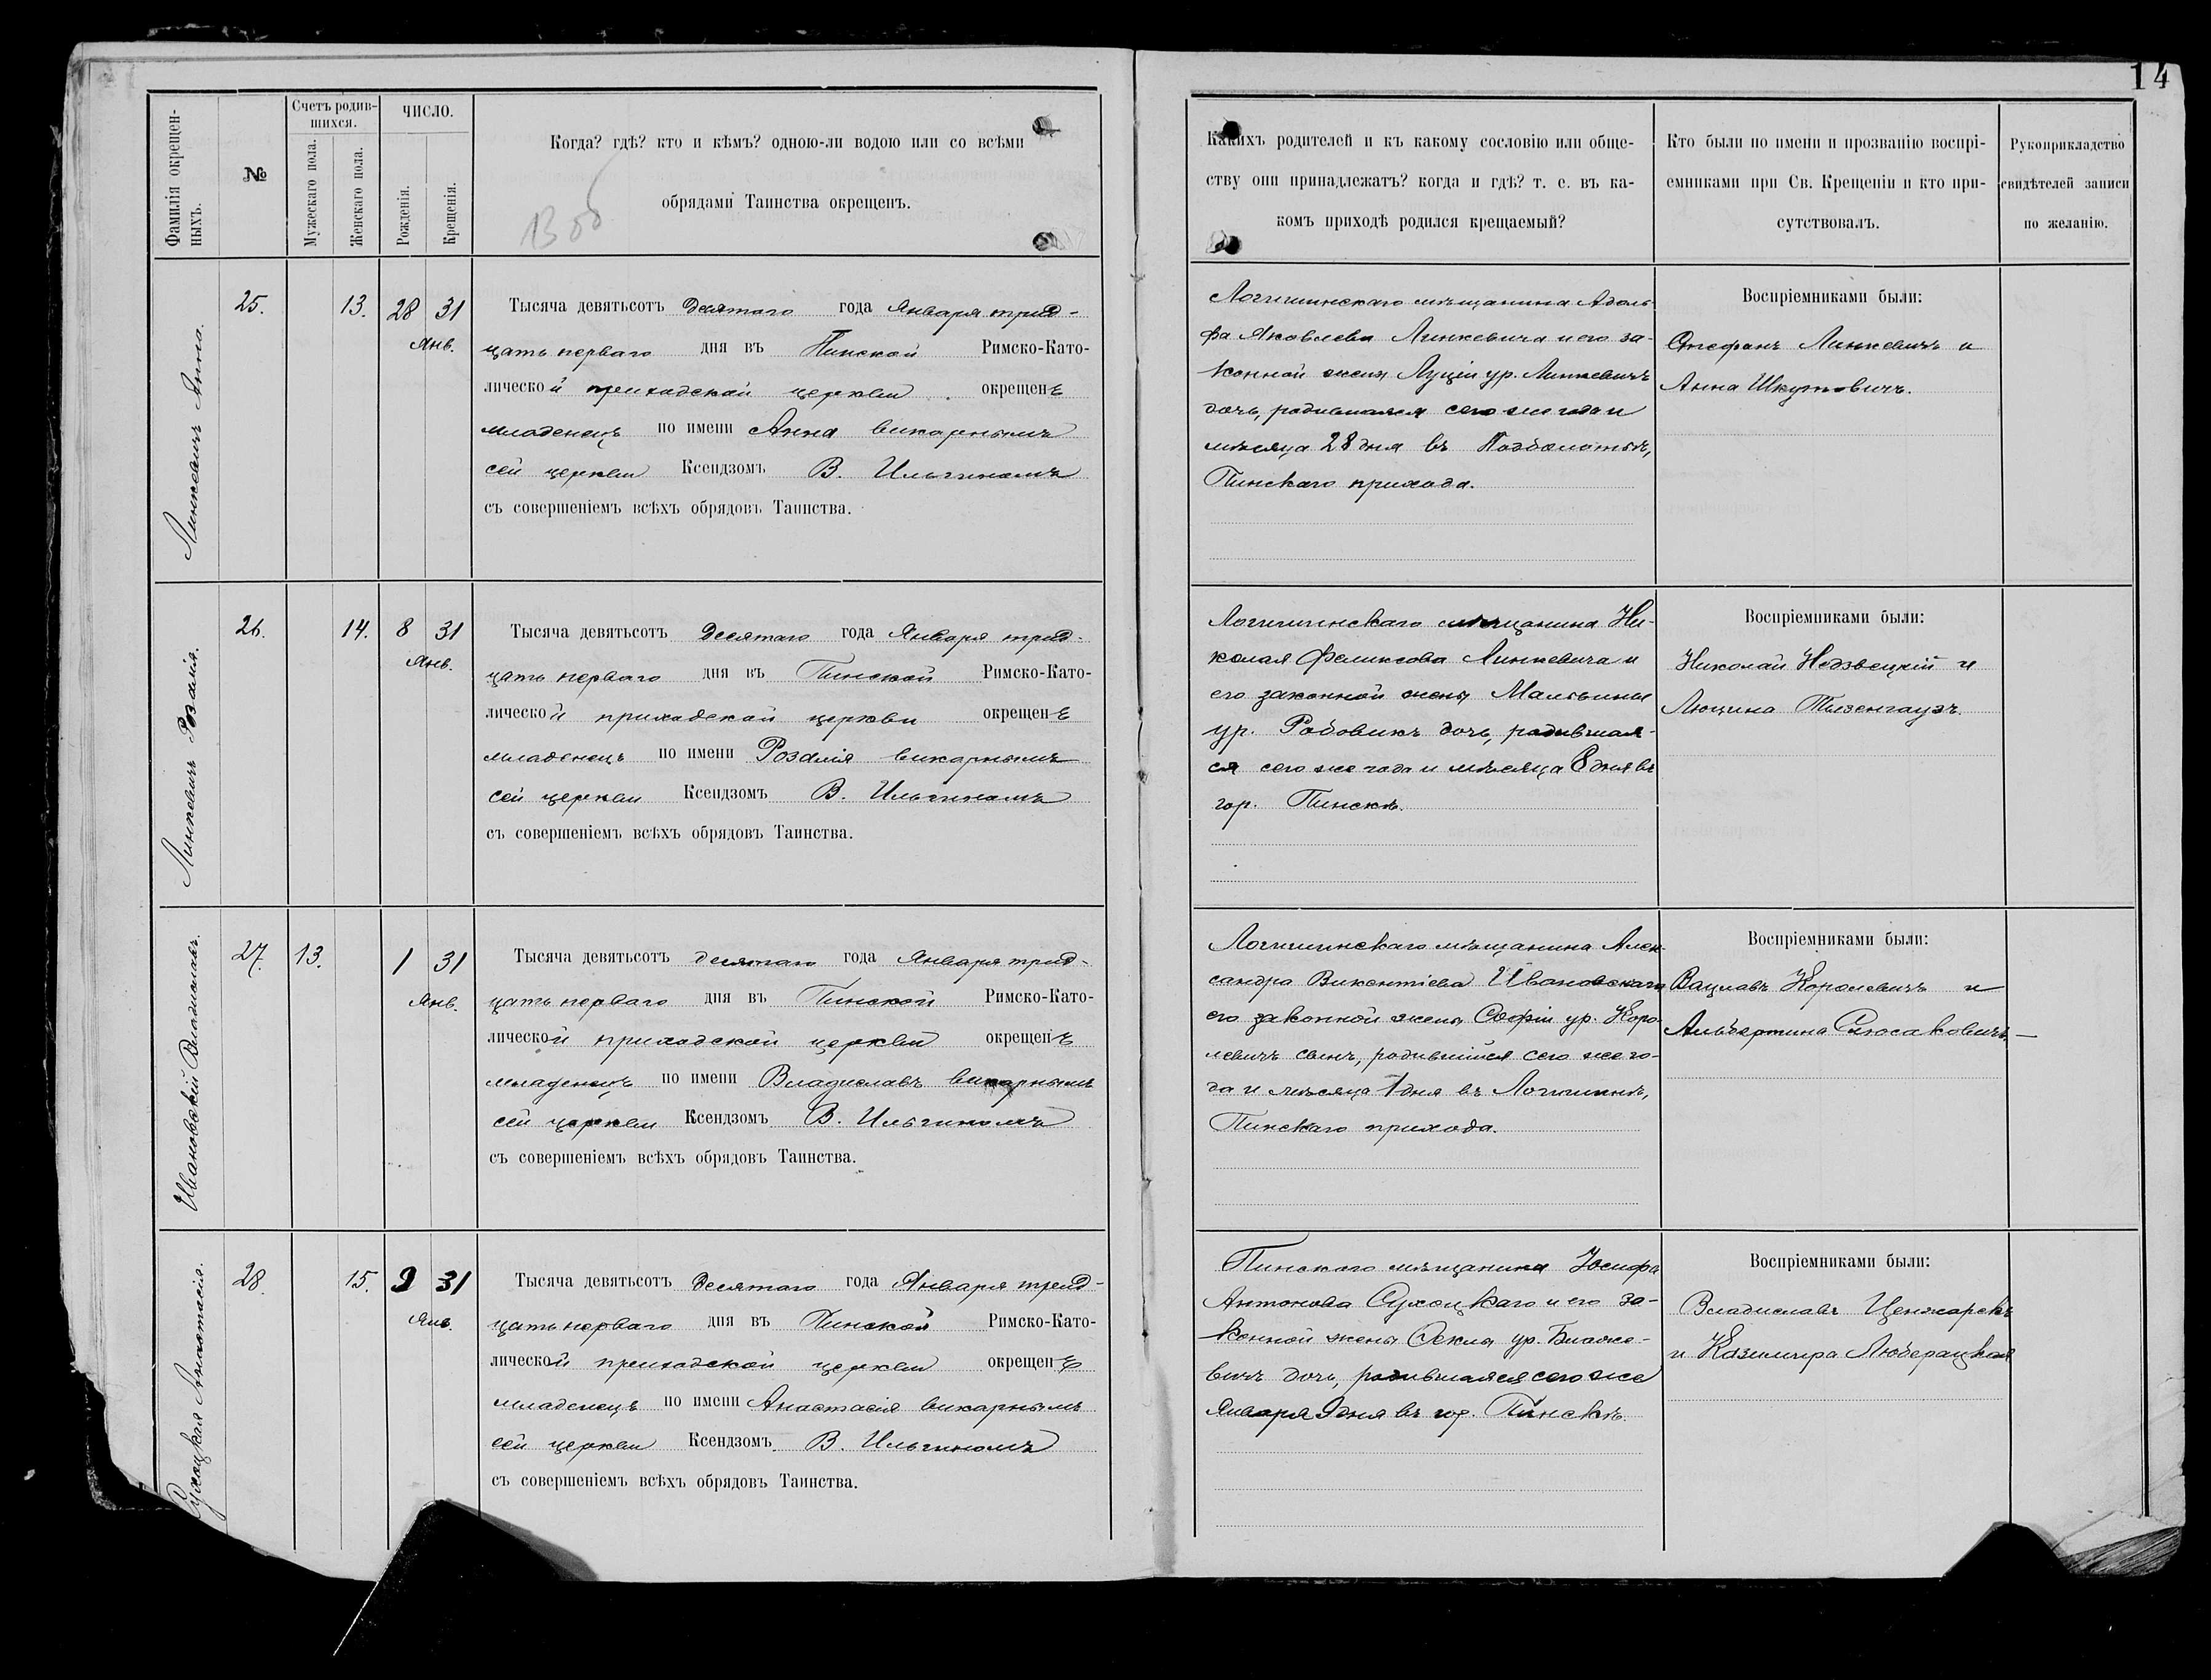 14
Фамилія окрещен-
ныхъ.
№
Счетъ родив-
шихся.
Мужескаго пола.
Женскаго пола.
ЧИСЛО.
Рожденія.
Крещенія.
Когда? гдѣ? кто и кѣмъ? одною-ли водою или со всѣми
обрядами Таинства окрещенъ.
Какихъ родителей и къ какому сословію или обще-
ству они принадлежатъ? когда и гдѣ? т. е. въ ка-
комъ приходѣ родился крещаемый?
Кто были по имени и прозванію воспрі-
емниками при Св. Крещеніи и кто при-
сутствовалъ.
Рукоприкладство
свидѣтелей записи
по желанію.
Линкевичъ Анна.
25.
13.
28 31
Янв.
Тысяча девятьсотъ десятаго года Января трид-
цать перваго дня въ Пинской Римско-Като-
лической приходской церкви окрещенъ
младенецъ по имени Анна викарнымъ
сей церкви Ксендзомъ В. Ильгиномъ
съ совершеніемъ всѣхъ обрядовъ Таинства.
Логишинскаго мѣщанина Адоль-
фа Яковлева Линкевича и его за-
конной жены Луціи ур. Линкевичъ
дочь, родившаяся сего же года и
мѣсяца 28 дня въ Подболотьѣ,
Пинскаго прихода.
Воспріемниками были:
Стефанъ Линкевичъ и
Анна Шкутовичъ.
Линкевичъ Розалія.
26.
14.
8 31
Янв.
Тысяча девятьсотъ десятаго года Января трид-
цать перваго дня въ Пинской Римско-Като-
лической приходской церкви окрещенъ
младенецъ по имени Розалія викарнымъ
сей церкви Ксендзомъ В. Ильгиномъ
съ совершеніемъ всѣхъ обрядовъ Таинства.
Логишинскаго мѣщанина Ни-
колая Феликсова Линкевича и
его законной жены Мальвины
ур. Робовикъ дочь, родившая-
ся сего же года и мѣсяца 8 дня въ
гор. Пинскѣ.
Воспріемниками были:
Николай Недзвецкій и
Люцина Тызенгаузъ.
Ивановскій Владиславъ.
27.
13.
1 31
Янв.
Тысяча девятьсотъ десятаго года Января трид-
цать перваго дня въ Пинской Римско-Като-
лической приходской церкви окрещенъ
младенецъ по имени Владиславъ викарнымъ
сей церкви Ксендзомъ В. Ильгиномъ
съ совершеніемъ всѣхъ обрядовъ Таинства.
Логишинскаго мѣщанина Алек-
сандра Викентіева Ивановскаго
его законной жены Софіи ур. Коро-
левичъ сынъ, родившійся сего же го-
да и мѣсяца 1 дня въ Логишинѣ,
Пинскаго прихода.
Воспріемниками были:
Вацлавъ Королевичъ и
Альбертина Слюсаковичъ.
Сухоцкая Анастасія.
28.
15.
9 31
Янв.
Тысяча девятьсотъ десятаго года Января трид-
цать перваго дня въ Пинской Римско-Като-
лической приходской церкви окрещенъ
младенецъ по имени Анастасія викарнымъ
сей церкви Ксендзомъ В. Ильгиномъ
съ совершеніемъ всѣхъ обрядовъ Таинства.
Пинскаго мѣщанина Іосифа
Антонова Сухоцкаго и его за-
конной жены Теклы ур. Блаже-
вичъ дочь, родившаяся сего же
Января 9 дня въ гор. Пинскѣ.
Воспріемниками были:
Владиславъ
и Казимира Люберацкая